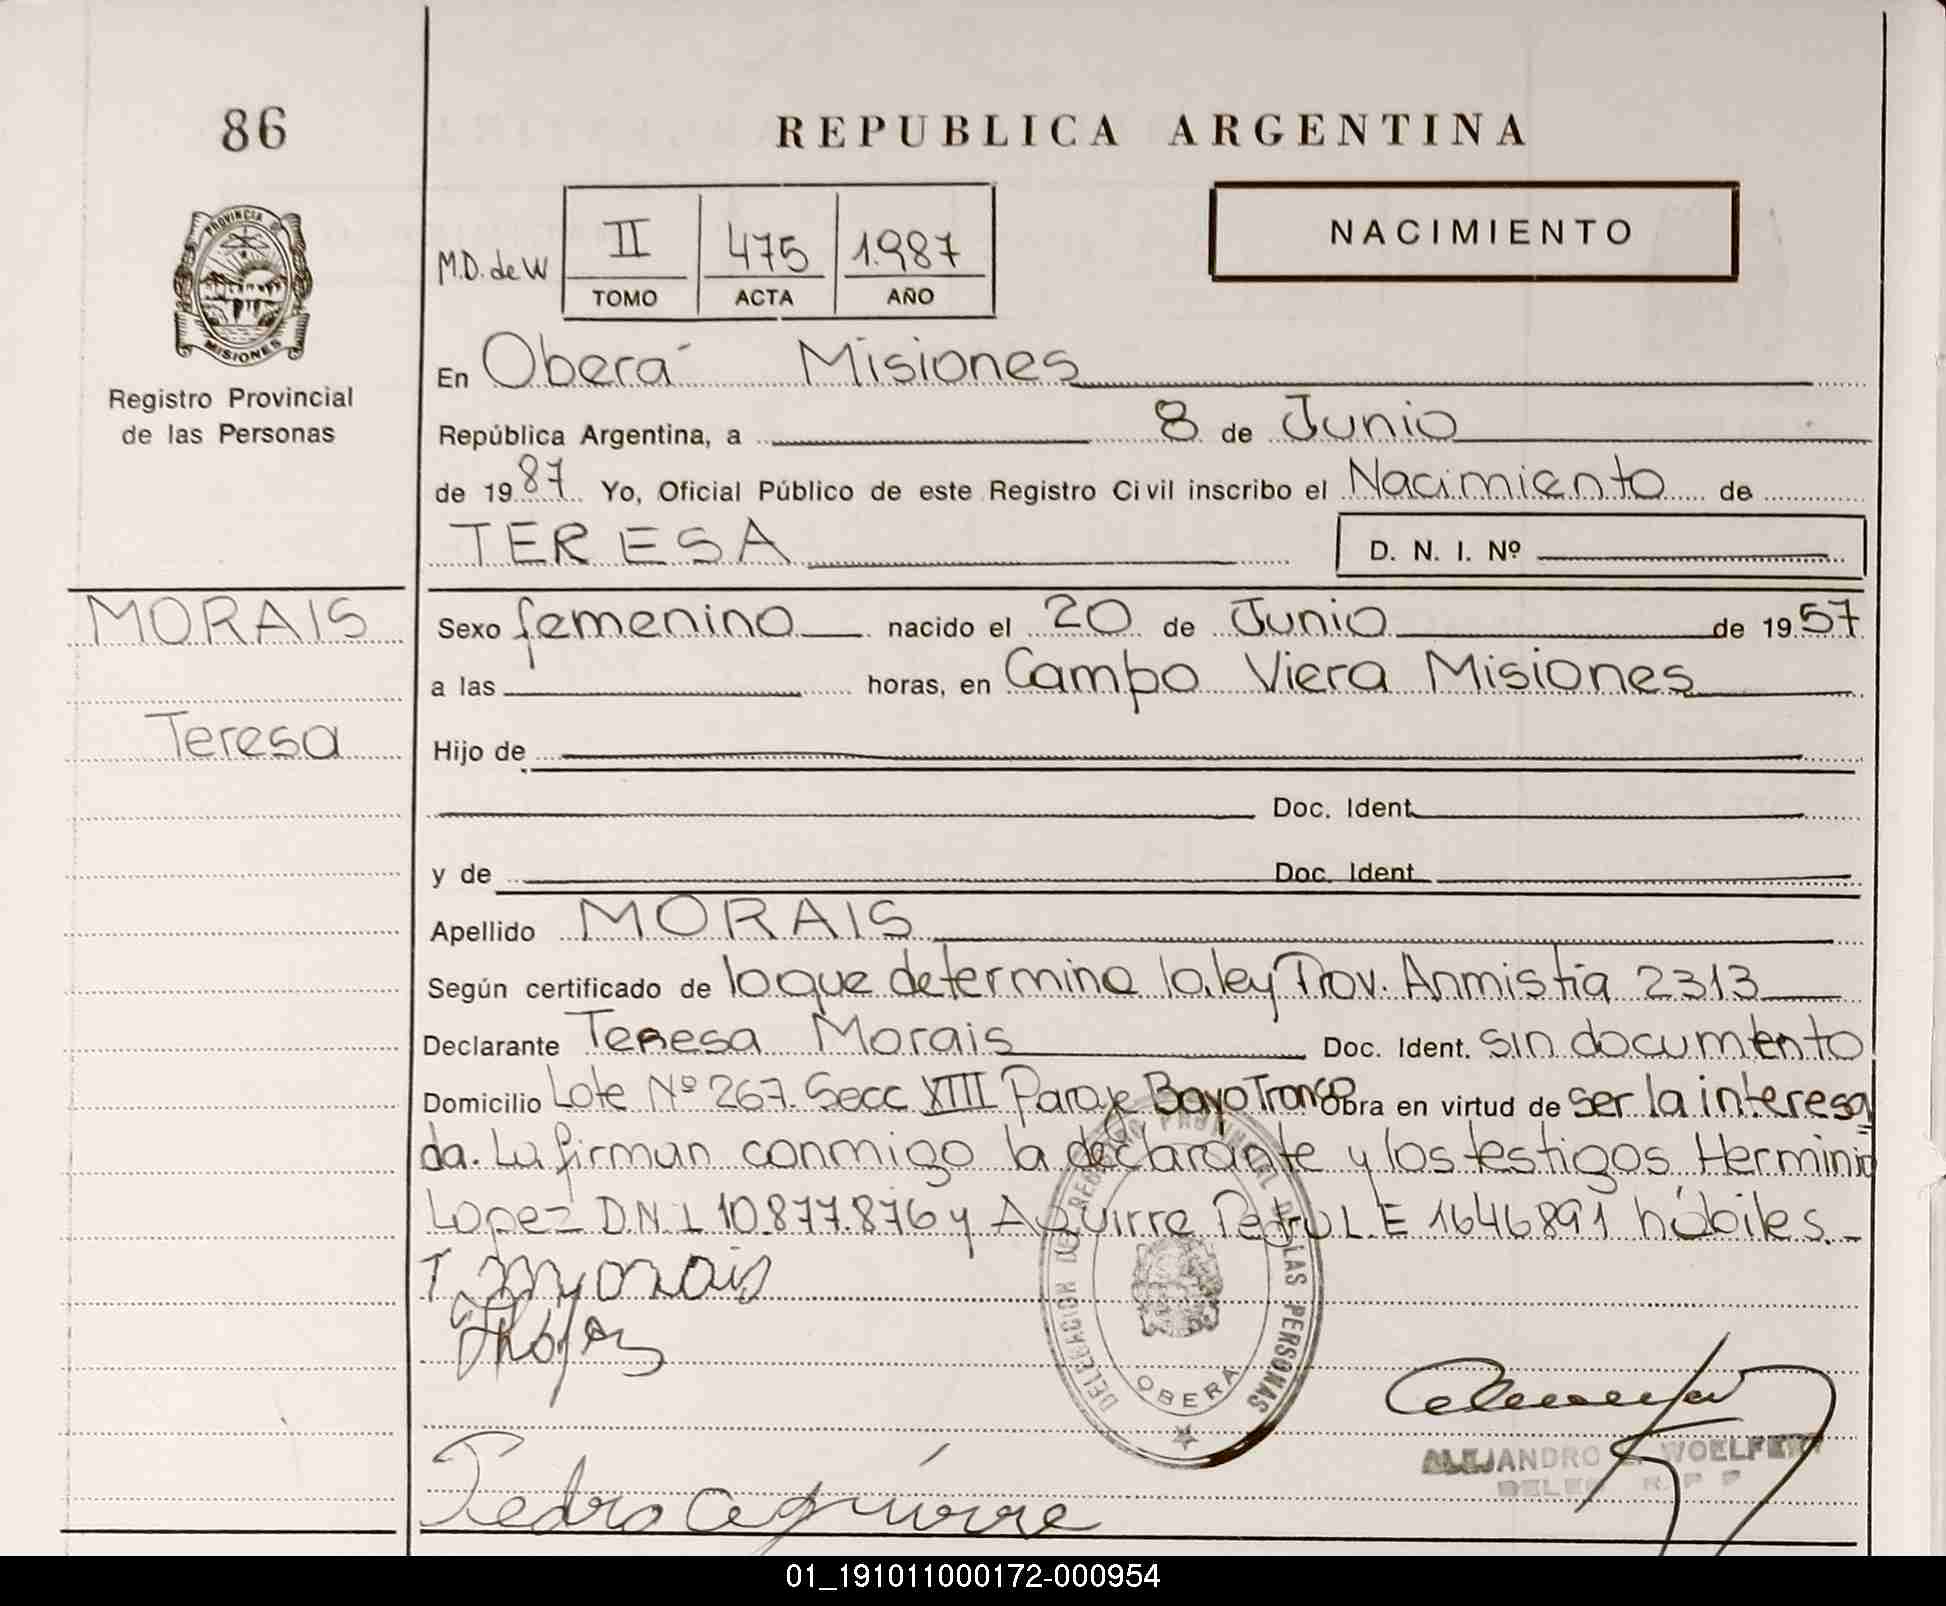 86
REPUBLICA ARGENTINA
PROVINCIA
MISIONES
Registro Provincial
de las Personas
M.D. de W
II 475 1.987
TOMO ACTA AÑO
NACIMIENTO
En Oberá Misiones
República Argentina, a 8 de Junio
de 1987 Yo, Oficial Público de este Registro Civil inscribo el Nacimiento de
TERESA D. N. I. Nº
MORAIS
Teresa
Sexo femenino nacido el 20 de Junio de 1957
a las horas, en Campo Viera Misiones
Hijo de
Doc. Ident.
y de Doc. Ident.
Apellido MORAIS
Según certificado de lo que determina la ley Prov. Anmistia 2313
Declarante Teresa Morais Doc. Ident. sin documento
Domicilio Lote Nº 267. Secc XIII Paraje Bayo Troncoobra en virtud de ser la interesa
da. La firman conmigo la declarante y los testigos Herminio
Lopez D.N.I 10.877.876 y Aguirre Pedro L.E 1646891 hábiles.-
T. morais
Pedro aguirre
DELEGACION DEL REGISTRO PROVINCIAL DE LAS PERSONAS
OBERÁ
ALEJANDRO WOELFERT
DELEG R.P.P
01_191011000172-000954